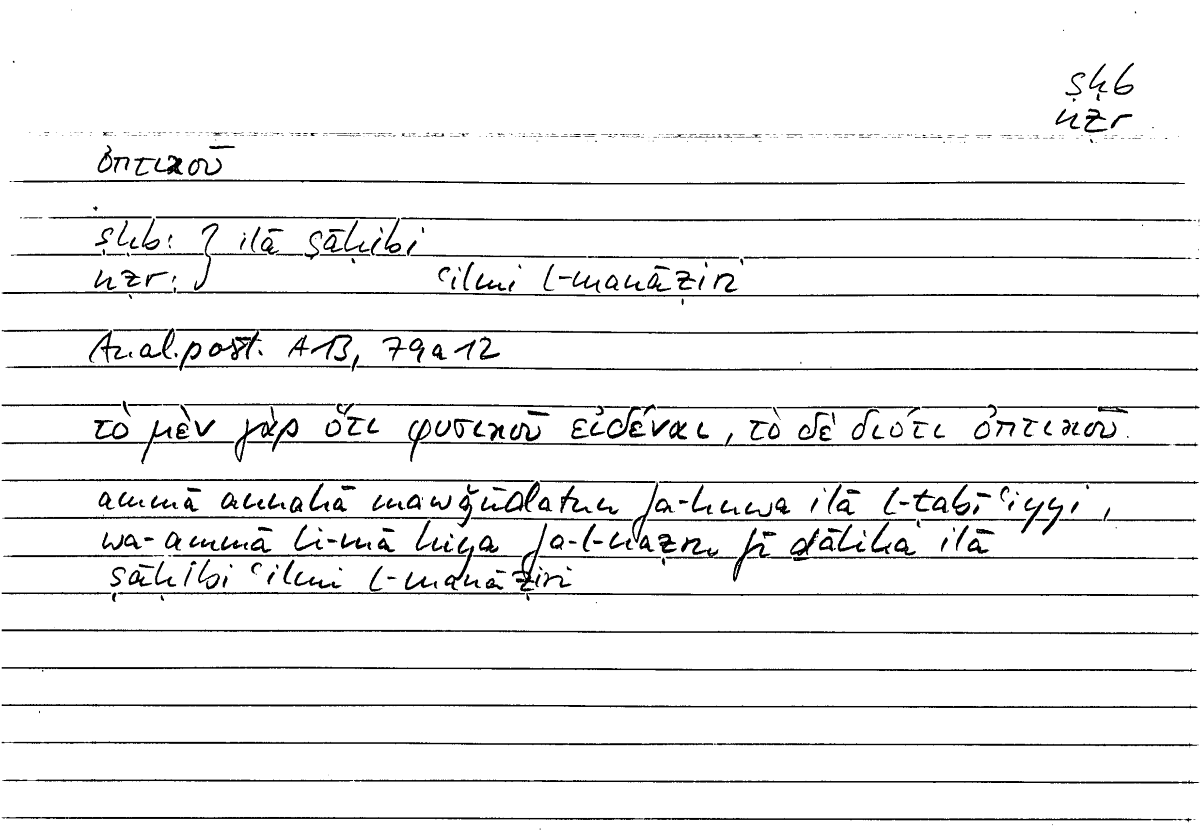 ṣḥb
nẓr
ὀπτικοῦ
ṣḥb: } ilā ṣāḥibi
nẓr: } ʿilmi l-manāẓiri
Anal.post. A 13, 79a12
τὸ μὲν γὰρ ὅτι φυσικοῦ εἰδέναι, τὸ δὲ διότι ὀπτικοῦ.
ammā annahā mawǧūdatun fa-huwa ilā l-ṭabīʿiyyi,
wa-ammā li-mā hiya fa-l-naẓru fī ḏālika ilā
ṣāḥibi ʿilmi l-manāẓiri